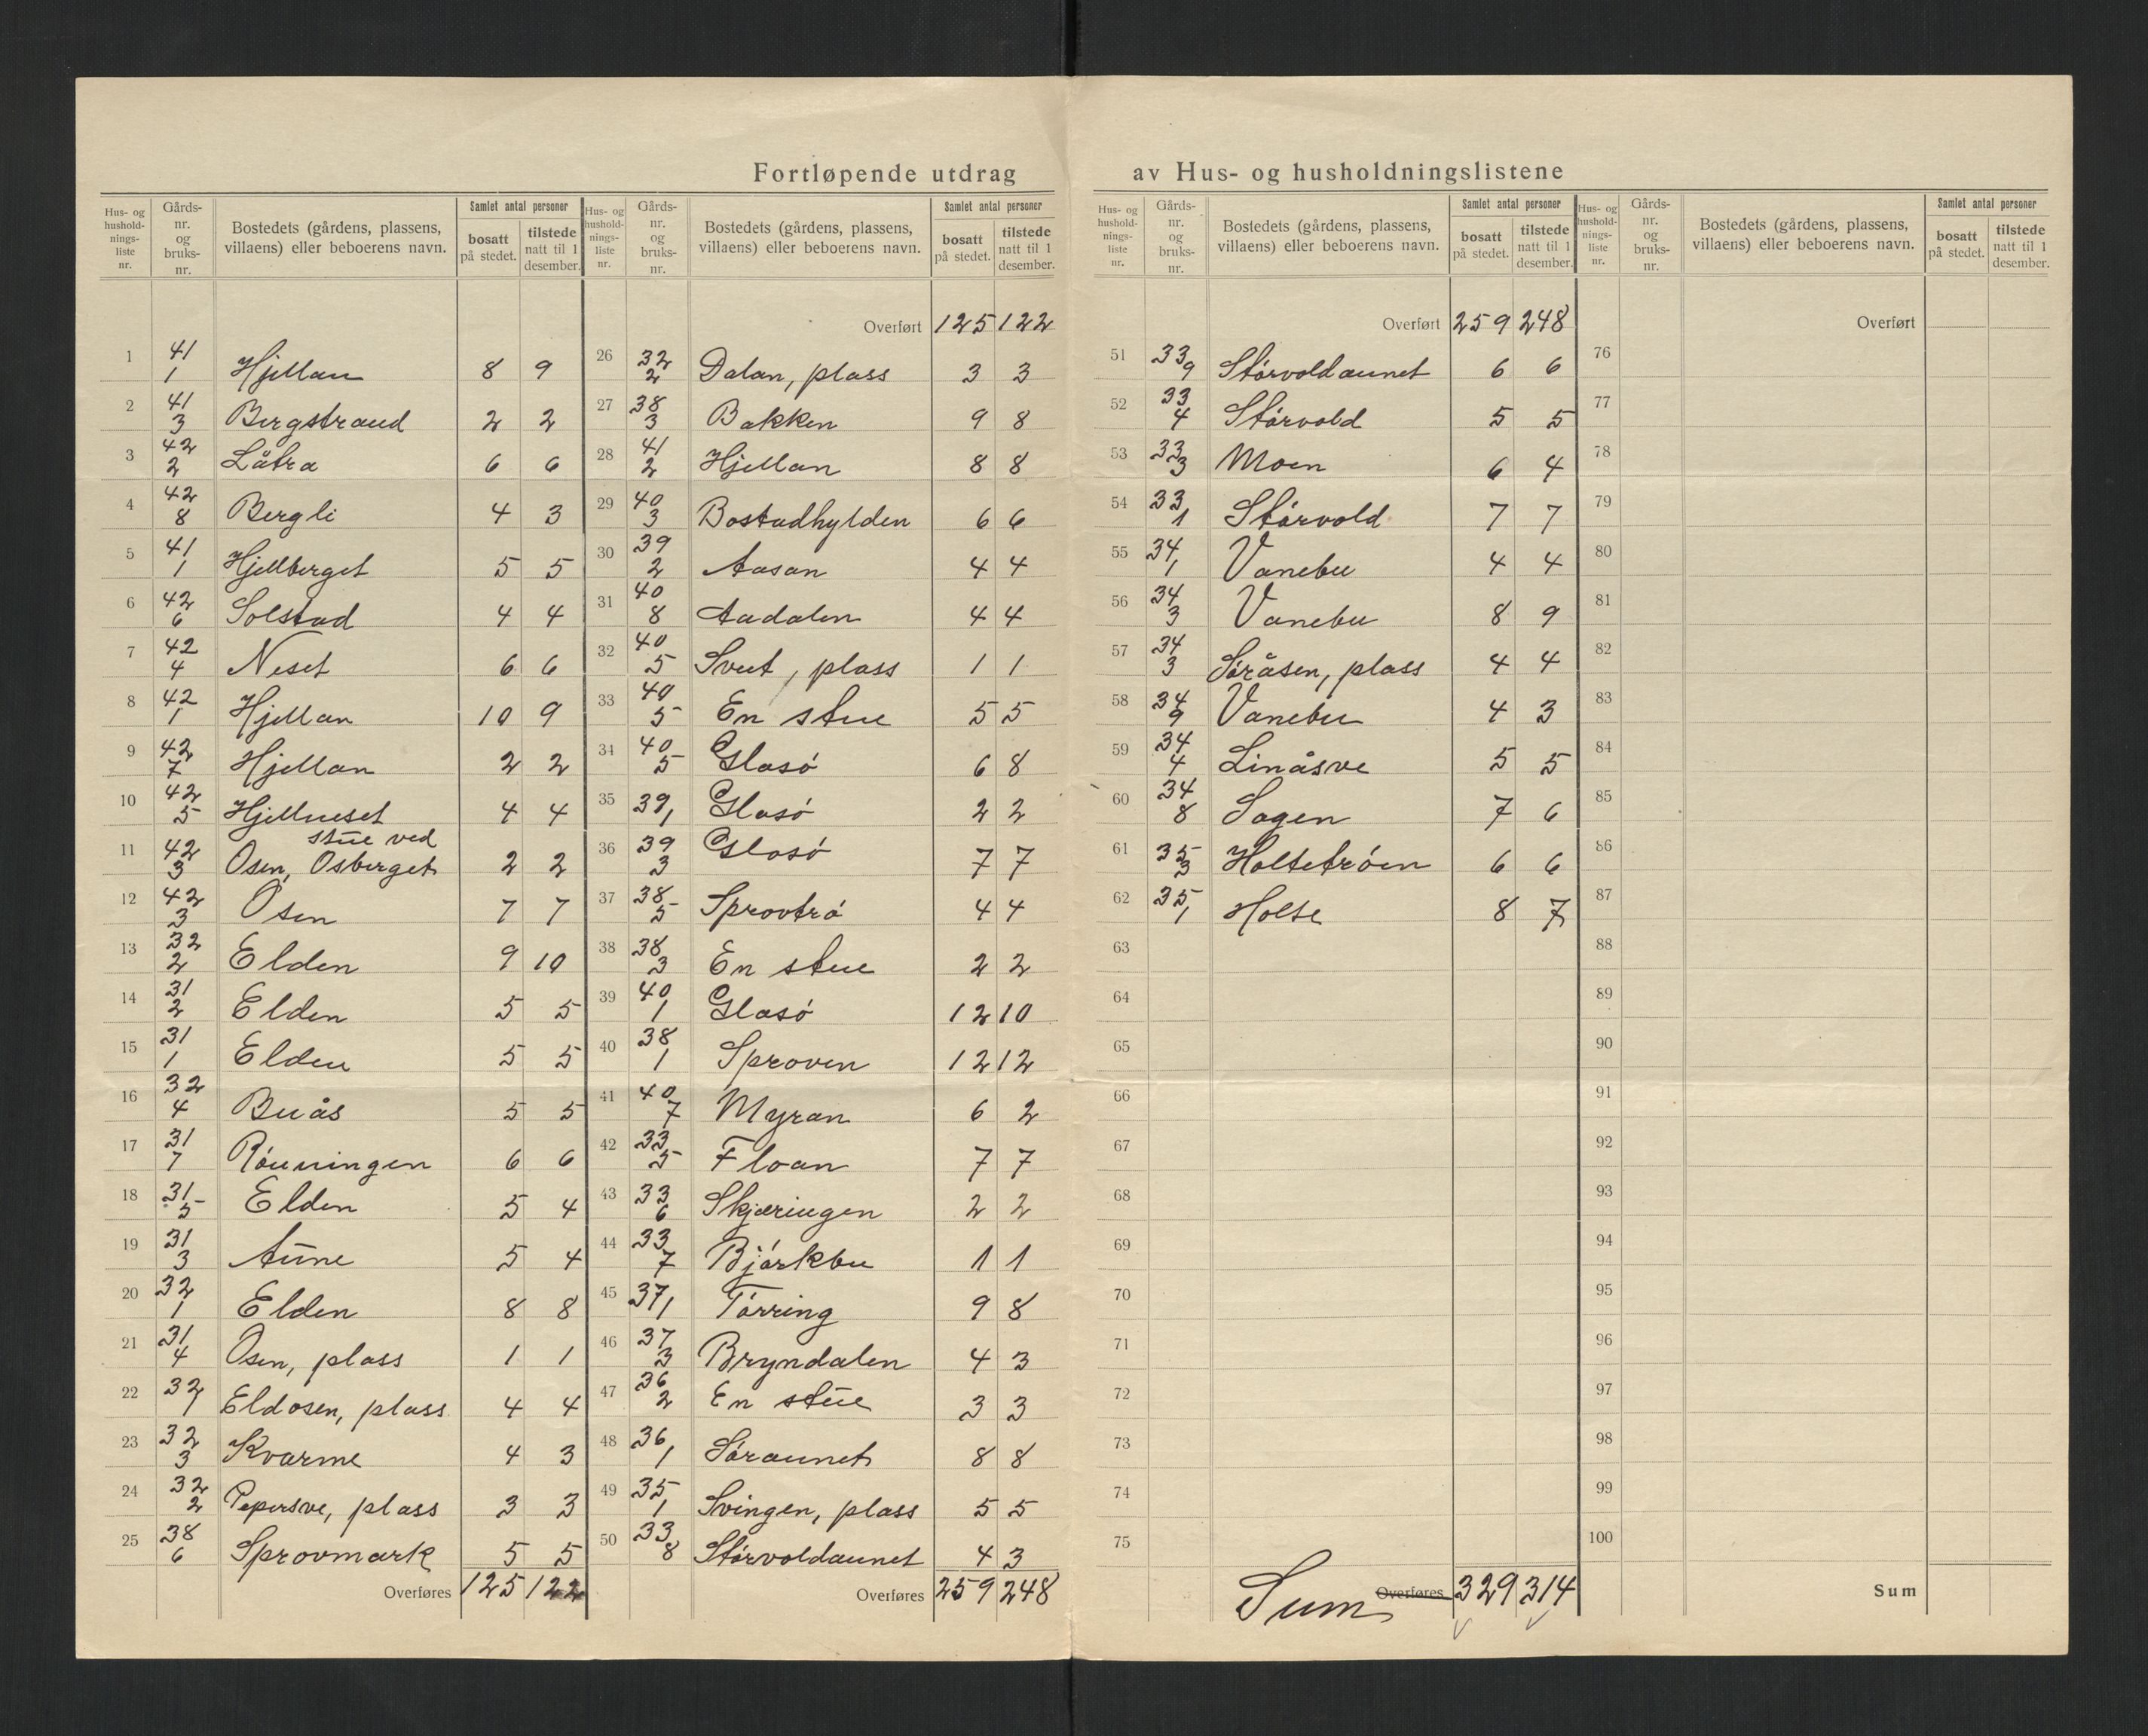 Fortløpende utdrag av Hus- og husholdningslistene
Hus- og hushold-nings-liste nr. | Gårds-nr. og bruks-nr. | Bostedets (gårdens, plassens, villaens) eller beboerens navn. | Samlet antal personer | bosatt på stedet. | tilstede natt til 1 desember.
1 41/1 Hjellan 8 9
2 41/3 Bergstrand 2 2
3 42/2 Låtra 6 6
4 42/8 Bergli 4 3
5 41/1 Hjellberget 5 5
6 42/6 Solstad 4 4
7 42/4 Neset 6 6
8 42/1 Hjellan 10 9
9 42/7 Hjellan 2 2
10 42/5 Hjellneset 4 4
stue ved
11 42/3 Osen, Osberget 2 2
12 42/3 Osen 7 7
13 32/2 Elden 9 10
14 31/2 Elden 5 5
15 31/1 Elden 5 5
16 32/4 Buås 5 5
17 31/7 Rönningen 6 6
18 31/5 Elden 5 4
19 31/3 Aune 5 4
20 32/1 Elden 8 8
21 31/4 Osen, plass 1 1
22 32/1 Eldosen, plass 4 4
23 32/3 Kvarme 4 3
24 32/2 Pepersve, plass 3 3
25 38/6 Sprovmark 5 5
Overføres 125 122
Hus- og hushold-nings-liste nr. | Gårds-nr. og bruks-nr. | Bostedets (gårdens, plassens, villaens) eller beboerens navn. | Samlet antal personer | bosatt på stedet. | tilstede natt til 1 desember.
Overført 125 122
26 32/2 Dalan, plass 3 3
27 38/3 Bakken 9 8
28 41/2 Hjellan 8 8
29 40/3 Bostadhylden 6 6
30 39/2 Aasan 4 4
31 40/8 Aadalen 4 4
32 40/5 Sveet, plass 1 1
33 40/5 En stue 5 5
34 40/5 Glasó 6 8
35 39/1 Glasó 2 2
36 39/3 Glasó 7 7
37 38/5 Sprovtró 4 4
38 38/3 En stue 2 2
39 40/1 Glasó 12 10
40 38/1 Sproven 12 12
41 40/7 Myran 6 2
42 33/5 Floan 7 7
43 33/6 Skjæringen 2 2
44 33/7 Bjórkbu 1 1
45 37/1 Tórring 9 8
46 37/3 Bryndalen 4 3
47 36/2 En stue 3 3
48 36/1 Sóraunet 8 8
49 35/1 Svingen, plass 5 5
50 33/8 Stórvoldaunet 4 3
Overføres 259 248
Hus- og hushold-nings-liste nr. | Gårds-nr. og bruks-nr. | Bostedets (gårdens, plassens, villaens) eller beboerens navn. | Samlet antal personer | bosatt på stedet. | tilstede natt til 1 desember.
Overført 259 248
51 33/9 Stórvoldaunet 6 6
52 33/4 Stórvold 5 5
53 33/3 Moen 6 4
54 33/1 Stórvold 7 7
55 34/1 Vanebu 4 4
56 34/3 Vanebu 8 9
57 34/3 Sóråsen, plass 4 4
58 34/9 Vanebu 4 3
59 34/4 Linåsve 5 5
60 34/8 Sagen 7 6
61 35/3 Holtetróen 6 6
62 35/1 Holte 8 7
63
64
65
66
67
68
69
70
71
72
73
74
75
Sum Overføres 329 314
Hus- og hushold-nings-liste nr. | Gårds-nr. og bruks-nr. | Bostedets (gårdens, plassens, villaens) eller beboerens navn. | Samlet antal personer | bosatt på stedet. | tilstede natt til 1 desember.
Overført
76
77
78
79
80
81
82
83
84
85
86
87
88
89
90
91
92
93
94
95
96
97
98
99
100
Sum